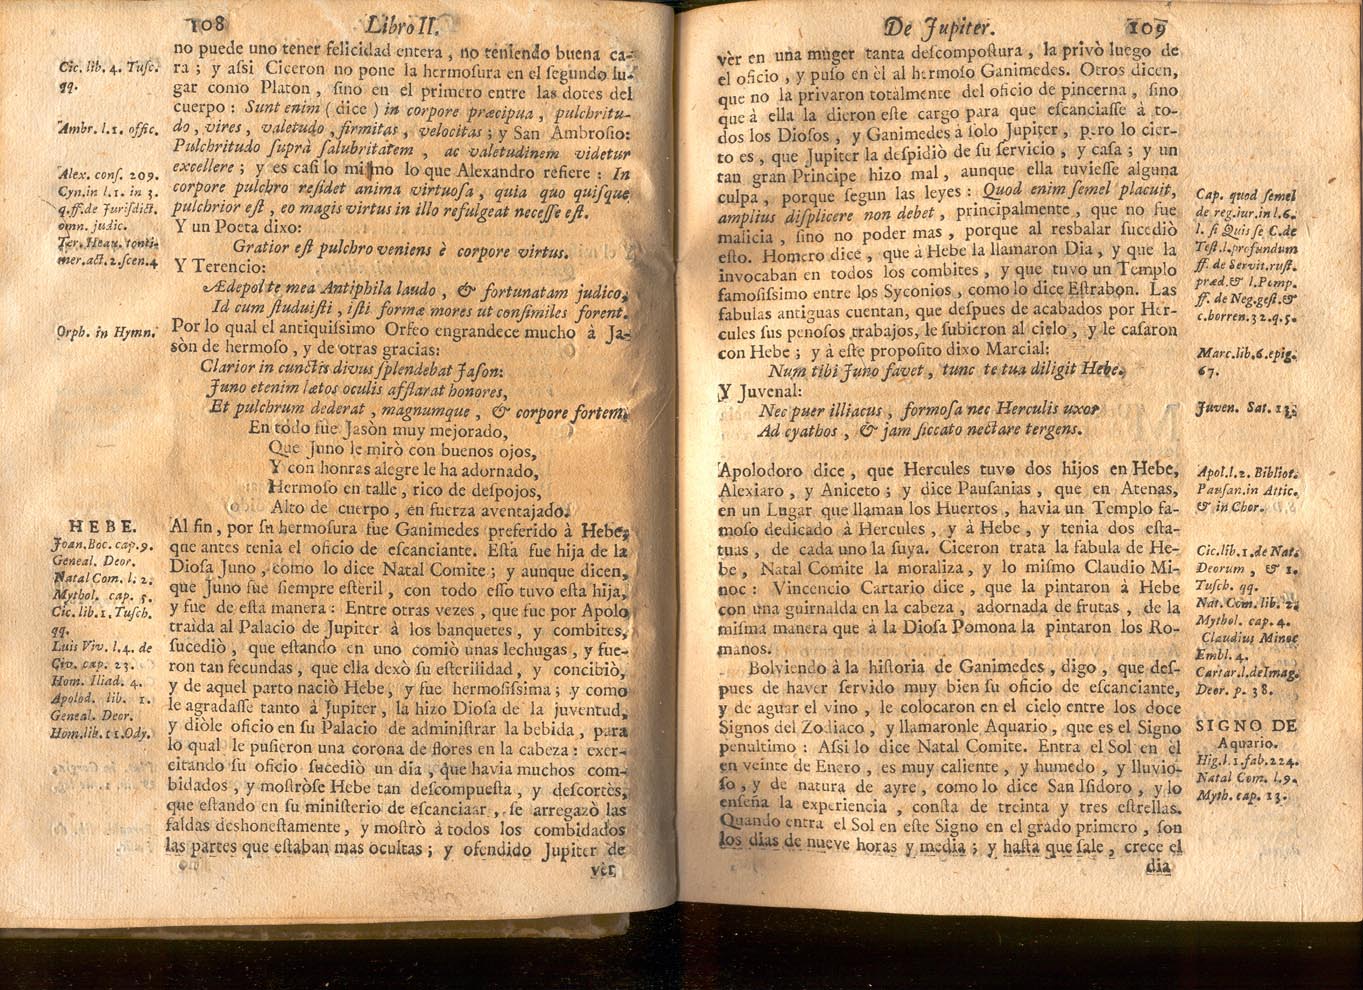 108 Libro II.
Cic. lib. 4. Tusc.
qq.
Ambr. l. 1. offic.
Alex. cons. 209.
Cyn. in l. 1. in 3.
q. ff. de Jurisdict.
omn. judic.
Ter. Heau. conti-
mer. act. 2. scen. 4
Orph. in Hymn.
no puede uno tener felicidad entera, no teniendo buena ca-
ra; y aſsi Ciceron no pone la hermoſura en el ſegundo lu-
gar como Platon, ſino en el primero entre las dotes del
cuerpo: Sunt enim (dice) in corpore præcipua, pulchritu-
do, vires, valetudo, firmitas, velocitas; y San Ambroſio:
Pulchritudo ſuprà ſalubritatem, ac valetudinem videtur
excellere; y es caſi lo miſmo lo que Alexandro refiere: In
corpore pulchro reſidet anima virtuoſa, quia quo quiſque
pulchrior eſt, eo magis virtus in illo refulgeat neceſſe eſt.
Y un Poeta dixo:
Gratior eſt pulchro veniens è corpore virtus.
Y Terencio:
Ædepol te mea Antiphila laudo, & fortunatam judico,
Id cum ſtuduiſti, iſti formæ mores ut conſimiles forent.
Por lo qual el antiquiſsimo Orfeo engrandece mucho à Ja-
sòn de hermoſo, y de otras gracias:
Clarior in cunctis divus ſplendebat Jaſon:
Juno etenim lætos oculis afflarat honores,
Et pulchrum dederat, magnumque, & corpore fortem.
En todo fue Jasòn muy mejorado,
Que Juno le mirò con buenos ojos,
Y con honras alegre le ha adornado,
Hermoſo en talle, rico de deſpojos,
Alto de cuerpo, en fuerza aventajado.
HEBE.
Joan. Boc. cap. 9.
Geneal. Deor.
Natal Com. l. 2.
Mythol. cap. 5.
Cic. lib. 1. Tuſch.
qq.
Luis Viv. l. 4. de
Civ. cap. 23.
Hom. Iliad. 4.
Apolod. lib. 1.
Geneal. Deor.
Hom. lib. 11. Ody.
Al fin, por ſu hermoſura fue Ganimedes preferido à Hebe,
que antes tenia el oficio de eſcanciante. Eſta fue hija de la
Dioſa Juno, como lo dice Natal Comite; y aunque dicen,
que Juno fue ſiempre eſteril, con todo eſſo tuvo eſta hija,
y fue de eſta manera: Entre otras vezes, que fue por Apolo
traida al Palacio de Jupiter à los banquetes, y combites,
ſucediò, que eſtando en uno comiò unas lechugas, y fue-
ron tan fecundas, que ella dexò ſu eſterilidad, y concibiò,
y de aquel parto naciò Hebe, y fue hermoſiſsima; y como
le agradaſſe tanto à Jupiter, la hizo Dioſa de la juventud,
y diòle oficio en ſu Palacio de adminiſtrar la bebida, para
lo qual le puſieron una corona de flores en la cabeza: exer-
citando ſu oficio ſucediò un dia, que havia muchos com-
bidados, y moſtròſe Hebe tan deſcompueſta, y deſcortès,
que eſtando en ſu miniſterio de eſcanciaar, ſe arregazò las
faldas deshoneſtamente, y moſtrò à todos los combidados
las partes que eſtaban mas ocultas; y ofendido Jupiter de
vèr
De Jupiter. 109
vèr en una muger tanta deſcompoſtura, la privò luego de
el oficio, y puſo en èl al hermoſo Ganimedes. Otros dicen,
que no la privaron totalmente del oficio de pincerna, ſino
que à ella la dieron eſte cargo para que eſcanciaſſe à to-
dos los Dioſos, y Ganimedes à ſolo Jupiter, pero lo cier-
to es, que Jupiter la deſpidiò de ſu ſervicio, y caſa; y un
tan gran Principe hizo mal, aunque ella tuvieſſe alguna
culpa, porque ſegun las leyes: Quod enim ſemel placuit,
amplius diſplicere non debet, principalmente, que no fue
malicia, ſino no poder mas, porque al resbalar ſucediò
eſto. Homero dice, que à Hebe la llamaron Dia, y que la
invocaban en todos los combites, y que tuvo un Templo
famoſiſsimo entre los Syconios, como lo dice Eſtrabon. Las
fabulas antiguas cuentan, que deſpues de acabados por Her-
cules ſus penoſos trabajos, le ſubieron al cielo, y le caſaron
con Hebe; y à eſte propoſito dixo Marcial:
Num tibi Juno favet, tunc te tua diligit Hebe.
Y Juvenal:
Nec puer illiacus, formoſa nec Herculis uxor
Ad cyathos, & jam ſiccato nectare tergens.
Cap. quod ſemel
de reg. iur. in l. 6.
l. ſi Quis ſe C. de
Teſt. l. profundum
ff. de Servit. ruſt.
præd. & l. Pomp.
ff. de Neg. geſt. &
c. horren. 32. q. 5.
Marc. lib. 6. epig.
67.
Juven. Sat. 13.
Apolodoro dice, que Hercules tuvo dos hijos en Hebe,
Alexiaro, y Aniceto; y dice Pauſanias, que en Atenas,
en un Lugar que llaman los Huertos, havia un Templo fa-
moſo dedicado à Hercules, y à Hebe, y tenia dos eſta-
tuas, de cada uno la ſuya. Ciceron trata la fabula de He-
be, Natal Comite la moraliza, y lo miſmo Claudio Mi-
noc: Vincencio Cartario dice, que la pintaron à Hebe
con una guirnalda en la cabeza, adornada de frutas, de la
miſma manera que à la Dioſa Pomona la pintaron los Ro-
manos.
Bolviendo à la hiſtoria de Ganimedes, digo, que deſ-
pues de haver ſervido muy bien ſu oficio de eſcanciante,
y de aguar el vino, le colocaron en el cielo entre los doce
Signos del Zodiaco, y llamaronle Aquario, que es el Signo
penultimo: Aſsi lo dice Natal Comite. Entra el Sol en èl
en veinte de Enero, es muy caliente, y humedo, y lluvio-
ſo, y de natura de ayre, como lo dice San Iſidoro, y lo
enſeña la experiencia, conſta de treinta y tres eſtrellas.
Quando entra el Sol en eſte Signo en el grado primero, ſon
los dias de nueve horas y media; y haſta que ſale, crece el
dia
Apol. l. 2. Bibliot.
Pauſan. in Attic.
& in Chor.
Cic. lib. 1. de Nat.
Deorum, & 1.
Tuſch. qq.
Nat. Com. lib. 2.
Mythol. cap. 4.
Claudius Minoc
Embl. 4.
Cartar. l. de Imag.
Deor. p. 38.
SIGNO DE
Aquario.
Hig. l. 1. fab. 224.
Natal Com. l. 9.
Myth. cap. 13.